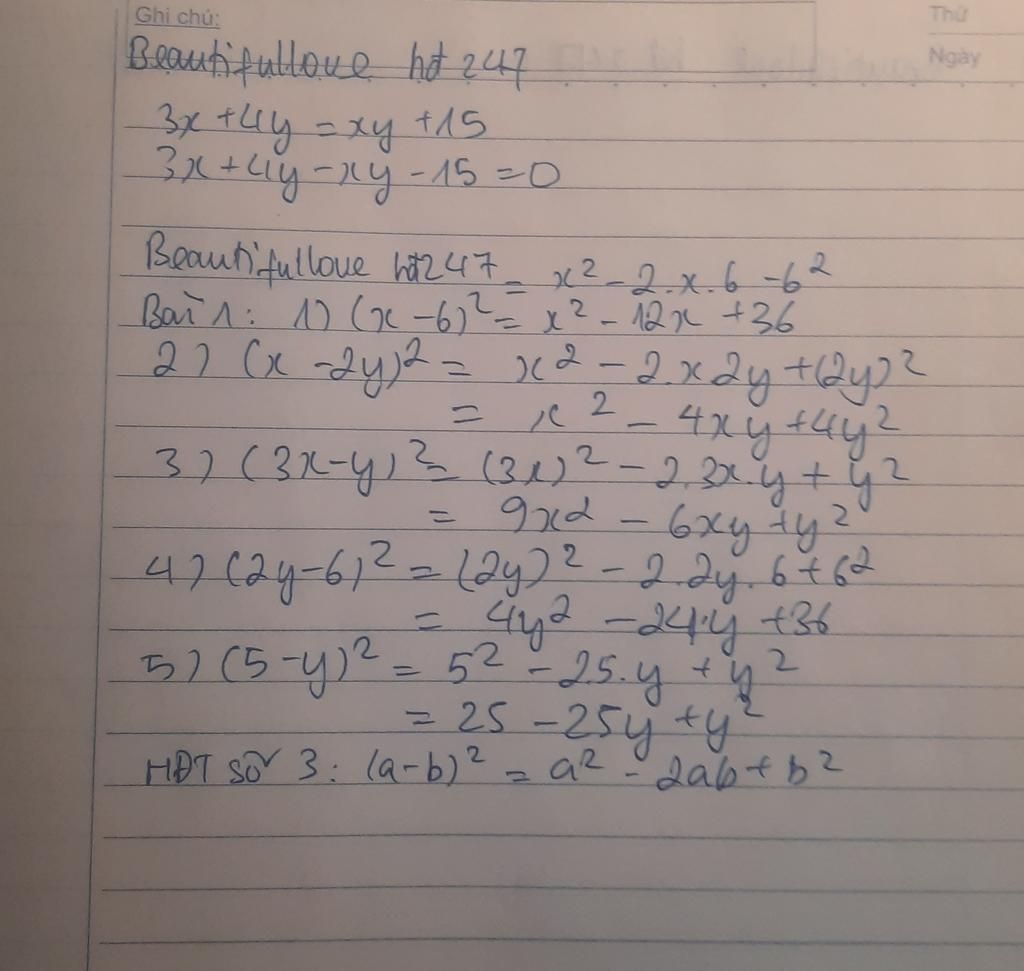 Ghi chú:
Thứ
Ngày
Beautifullove hđt 247
3x + 4y = xy + 15
3x + 4y - xy - 15 = 0
Beautifullove hđt 247 = x² - 2.x.6 - 6²
Bài 1: 1) (x - 6)² = x² - 12x + 36
2) (x - 2y)² = x² - 2.x 2y + (2y)²
= x² - 4xy + 4y²
3) (3x - y)² = (3x)² - 2.3x.y + y²
= 9x² - 6xy + y²
4) (2y - 6)² = (2y)² - 2.2y.6 + 6²
= 4y² - 24.y + 36
5) (5 - y)² = 5² - 25.y + y²
= 25 - 25y + y²
HĐT số 3: (a - b)² = a² - 2ab + b²